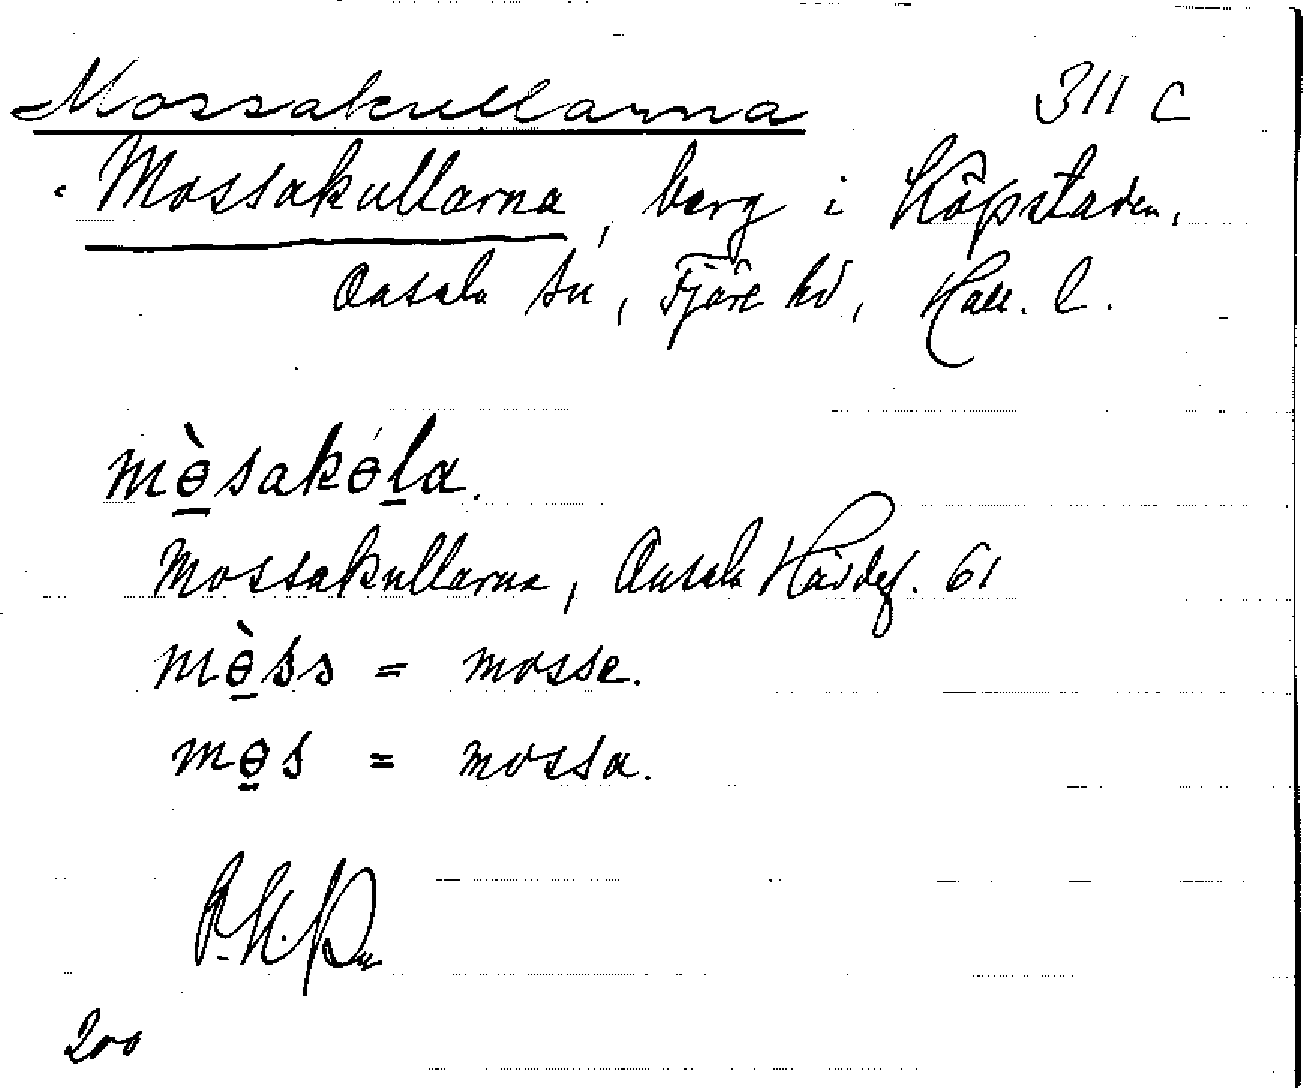 Mossakullarna 311 C
Mossakullarna, berg i Köpstaden,
Onsala sn, Fjäre hd, Hall. l.
mɵ̱̀sakɵ́ḻa.
Mossakullarna, Onsala Hävdef. 61
mɵ̱̀ss = mosse.
mɵ̱s = mossa.
200